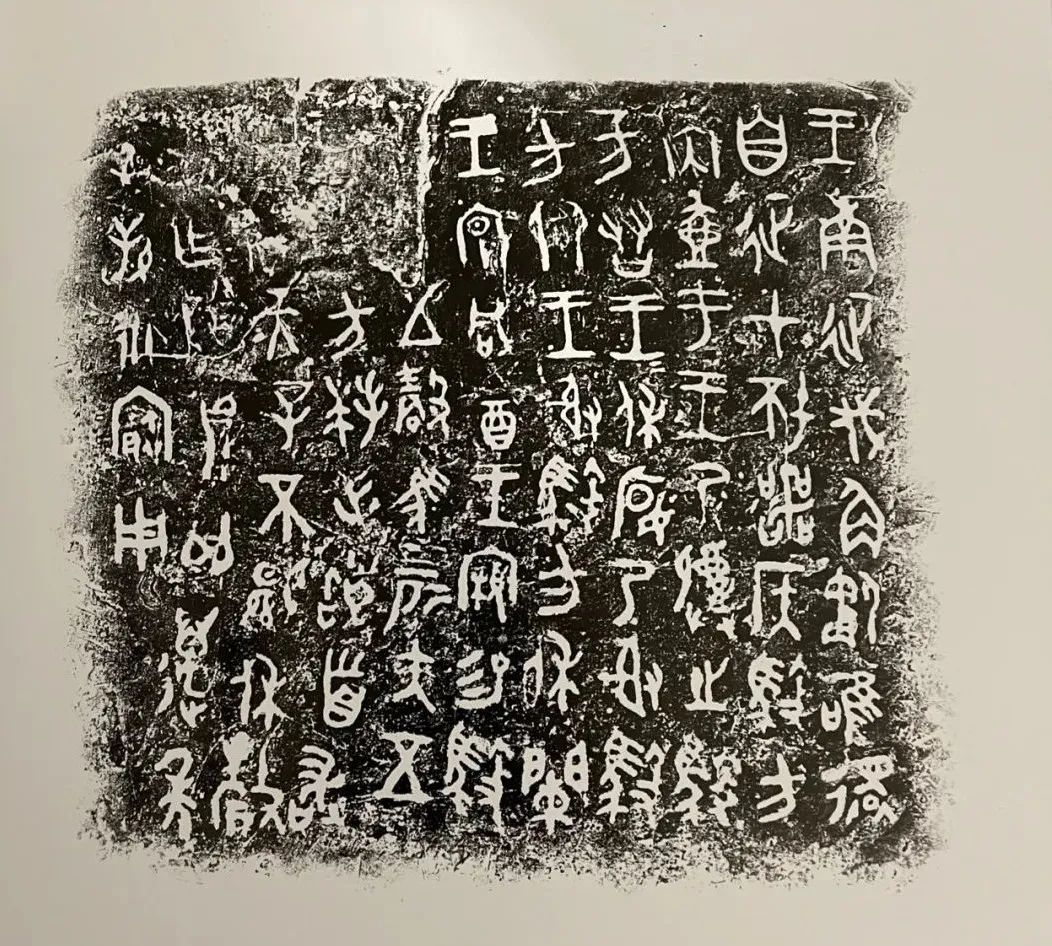 王南征伐角僪唯還
自征才坏噩侯馭方
內壺于王乃祼之馭
方侑王休宴乃射馭
方卿王射馭方休闌
王宴咸酓王親易馭
五瑴馬四匹矢五
方拜手稽首敢
天子不顯休釐
乍尊鼎其邁年子
孫永寶用